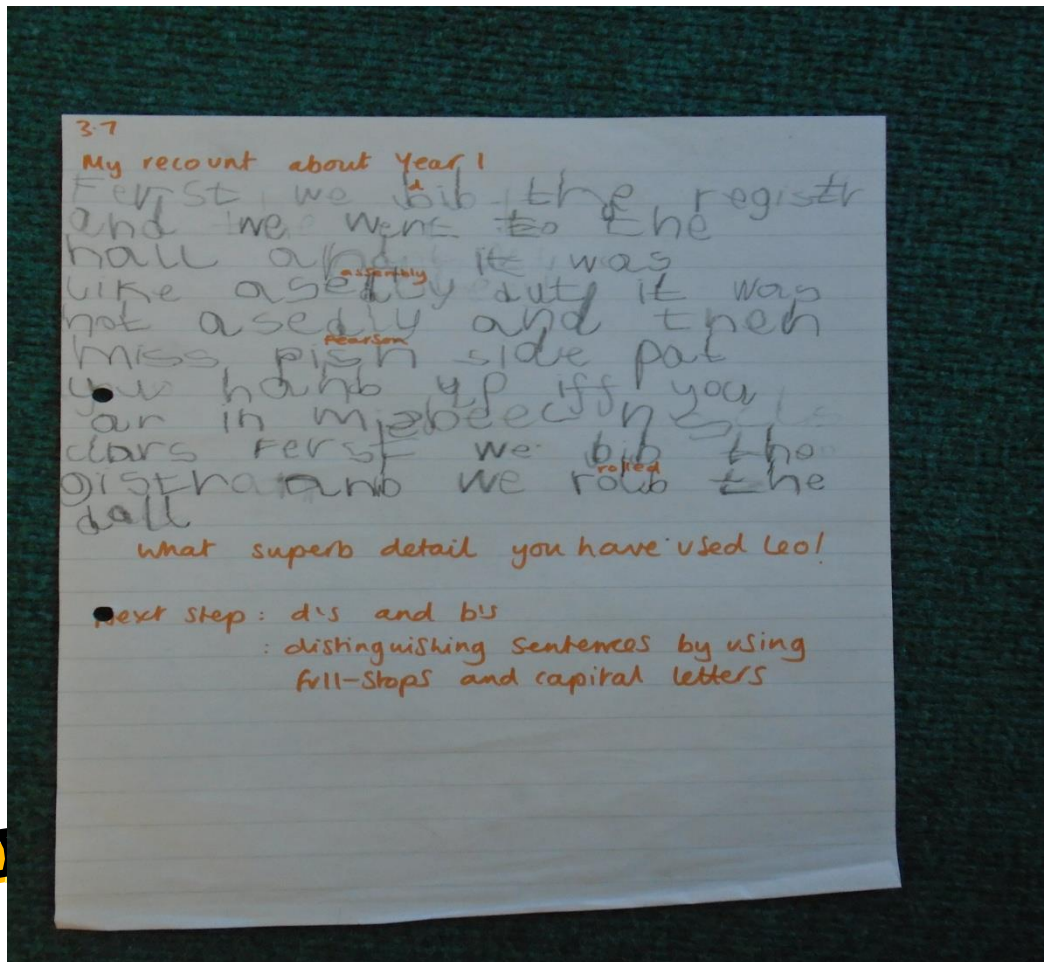 3.7
My recount about Year 1
d
Ferst we bib the registr
and we went to the
hall and it was
assembly
like asedly dut it was
not asedly and then
Pearson
miss pish side pat
you hanb up iff you
ar in
clars Ferst we bib the
rolled
gistr anb we rolb the
dall
What superb detail you have used Leo!
Next step: d's and b's
: distinguishing sentences by using
full-stops and capital letters